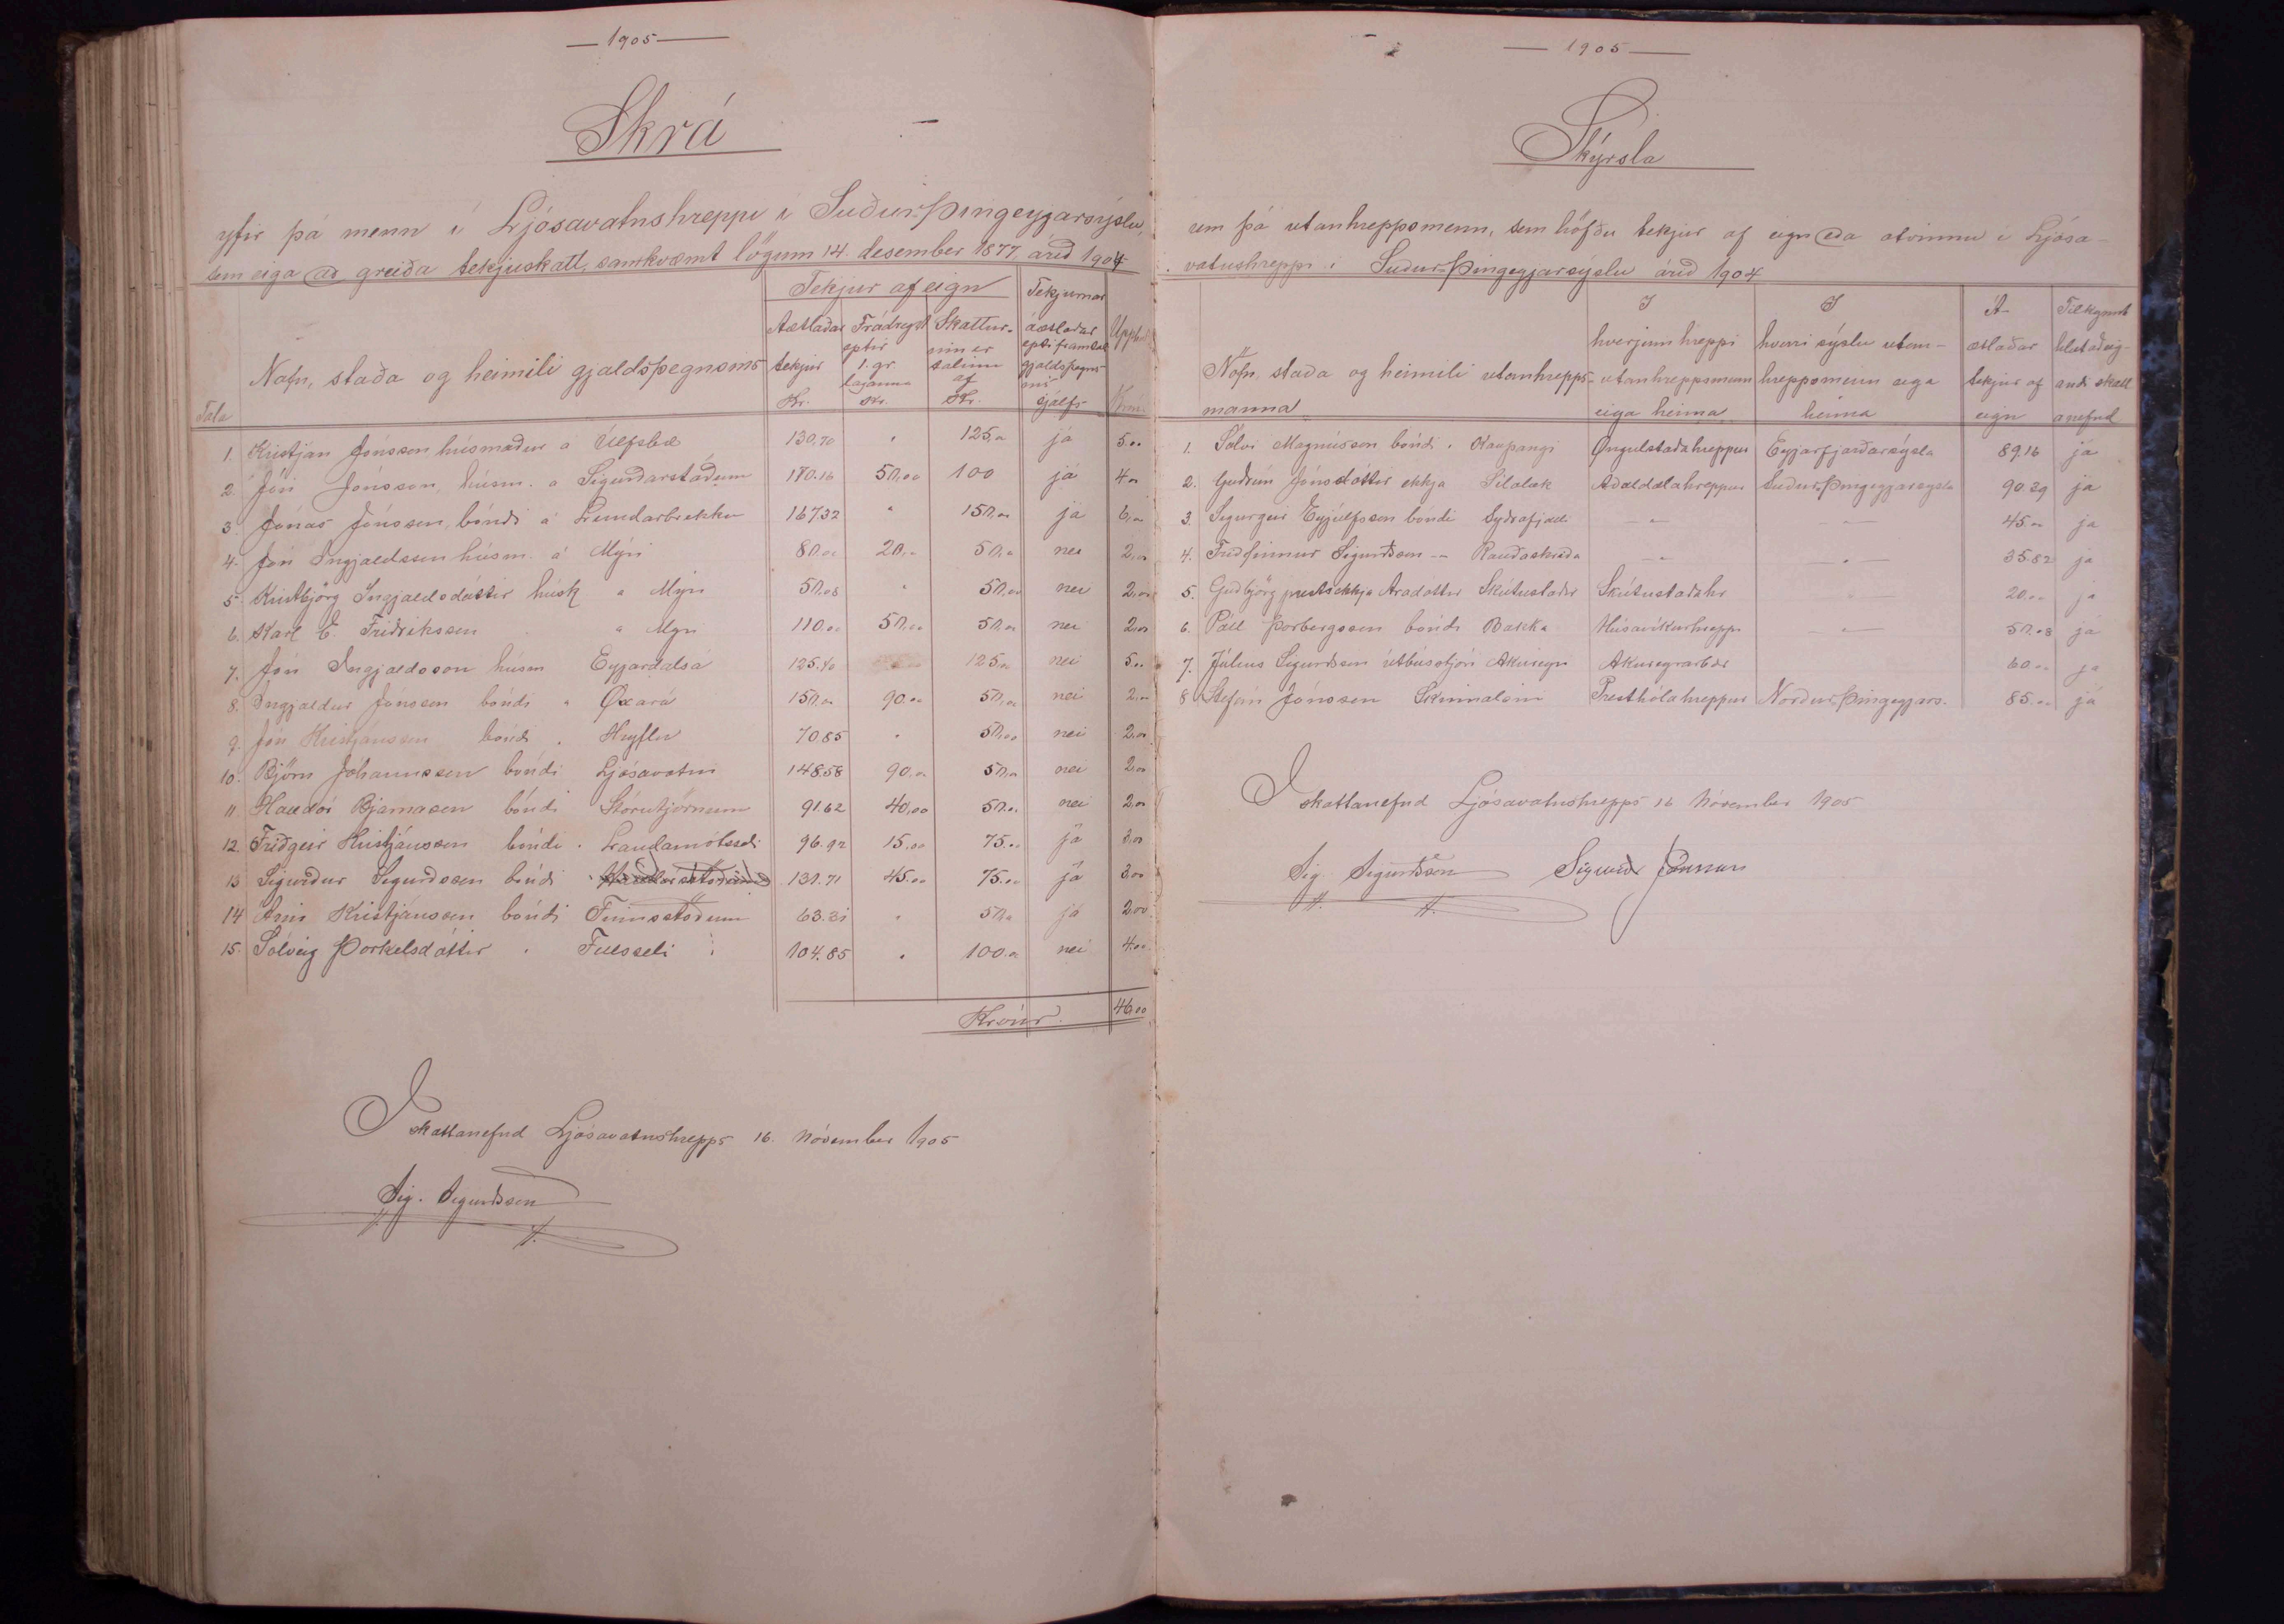 — 1905 —
Skrá
yfir þá menn í Ljósavatnshreppi í Suður-Þingeyjarsýslu,
sem eiga að greiða tekjuskatt, samkvæmt lögum 14. desember 1877, árið 1904
Tala
Nafn, staða og heimili gjaldþegnsins
Tekjur af eign
Áætlaðar tekjur Kr.
Frádregst eptir 1. gr laganna Kr.
Skatturinn er talinn af Kr.
Tekjurnar áætlaðar eptir framtali gjaldþegnsins sjálfs
1. Kristján Jónsson húsmaður á Úlfsbæ 130,70 " 125,00 já 5.00
2. Jón Jónsson, húsm. á Sigurðarstöðum 180.16 50,00 100 já 4.00
3. Jónas Jónsson, bóndi á Lundarbrekku 167.32 " 150,00 já 6,00
4. Jón Ingjaldsson húsm. á Mýri 80.00 20,00 50,00 nei 2,00
5. Kristbjörg Ingjaldsdóttir húsk " Mýri 50.08 " 50,00 nei 2,00
6. Karl E. Friðriksson " Mýri 110.00 50,00 50,00 nei 2,00
7. Jón Ingjaldsson húsm Eyjardalsá 125.40 125,00 nei 5.00
8. Ingjaldur Jónsson bóndi " Öxará 150,00 90.00 50,00 nei 2,00
9. Jón Kristjánsson bóndi " Hryflu 70.85 " 50,00 nei 2,00
10. Björn Jóhannsson bóndi Ljósavatni 148.58 90,00 50,00 nei 2,00
11 Halldór Bjarnason bóndi Stórutjörnum 91.62 40,00 50.00 nei 2,00
12. Friðgeir Kristjánsson bóndi " Landamótsseli 96.92 15,00 75.00 já 3,00
13 Sigurður Sigurðsson bóndi 131.71 45.00 75.00 já 3,00
14 Árni Kristjánsson bóndi Finnsstöðum 63.31 " 50,00 já 2,00
15. Sólveig Þorkelsdóttir " Fellsseli 104.85 " 100.00 nei 4.00
Krónur. 46,00
Í skattanefnd Ljósavatnshrepps 16. nóvember 1905
Sig. Sigurðsson
— 1905 —
Skýrsla
um þá utanhreppsmenn, sem höfðu tekjur af eign eða atvinnu í Ljósa-
vatnshreppi í Suður-Þingeyjarsýslu árið 1904
Nöfn, staða og heimili utanhreppsmanna
Í hverjum hreppi utanhreppsmenn eiga heima
Í hverri sýslu utanhreppsmenn eiga heima
Áætlaðar tekjur af eign
Tilkynnt hlutaðeigandi skattanefnd
1. Sölvi Magnússon bóndi . Kaupangi Öngulstaðahreppur Eyjarfjarðarsýsla 89.16 já
2. Guðrún Jónsdóttir ekkja Sílalæk Aðaldælahreppur Suður-Þingeyjarsýsla 90.39 já
3. Sigurgeir Eyjólfsson bóndi Syðrafjalli — " — — " — 45.00 já
4. Friðfinnur Sigurðsson — " — Rauðaskriða — " — — " — 35.82 já
5. Guðbjörg prestsekkja Aradóttir Skútustaðir Skútustaðahr — " — 20.00 já
6. Páll Þorbergsson bóndi Bakka Húsavíkurhreppi — " — 50.08 já
7. Júlíus Sigurðsson útbússtjóri Akureyri Akureyrarbær 60.00 já
8 Stefán Jónsson Skinnalóni Presthólahreppur Norður-Þingeyjars. 85.00 já
Í skattanefnd Ljósavatnshrepps 16 nóvember 1905
Sig. Sigurðsson Sigurður Jónsson